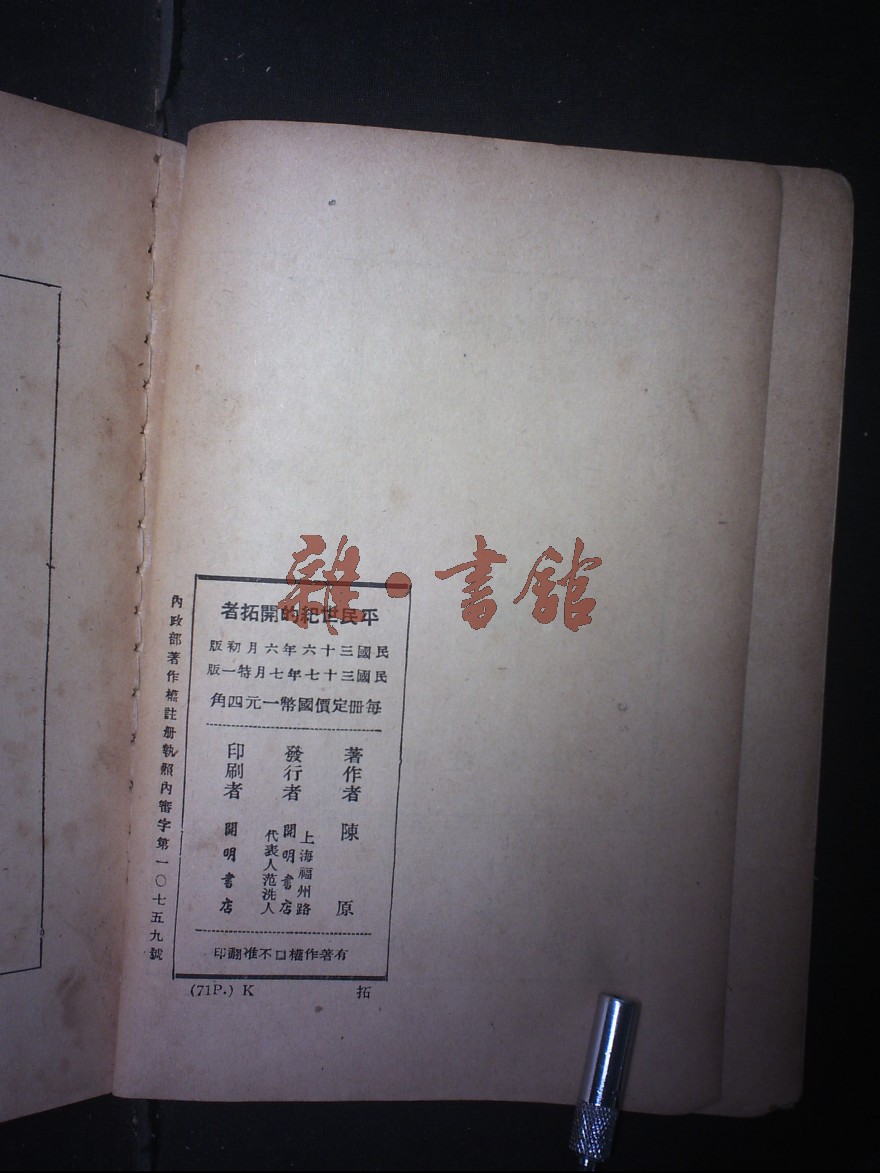 雜·書館
平民世紀的開拓者
民國三十六年六月初版
民國三十七年七月特一版
每冊定價國幣一元四角
著作者 陳原
發行者 上海福州路 開明書店 代表人范洗人
印刷者 開明書店
有著作權□不准翻印
內政部著作權註册執照內審字第一〇七五九號
(71P.) K 拓